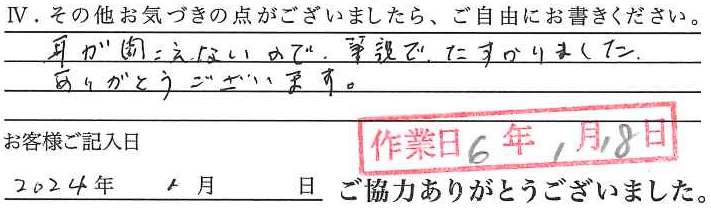 Ⅳ.その他お気づきの点がございましたら、ご自由にお書きください。
耳が聞こえないので、筆談で、たすかりました。
ありがとうございます。
お客様ご記入日
作業日 6年 1月 18日
2024年 1月 日 ご協力ありがとうございました。